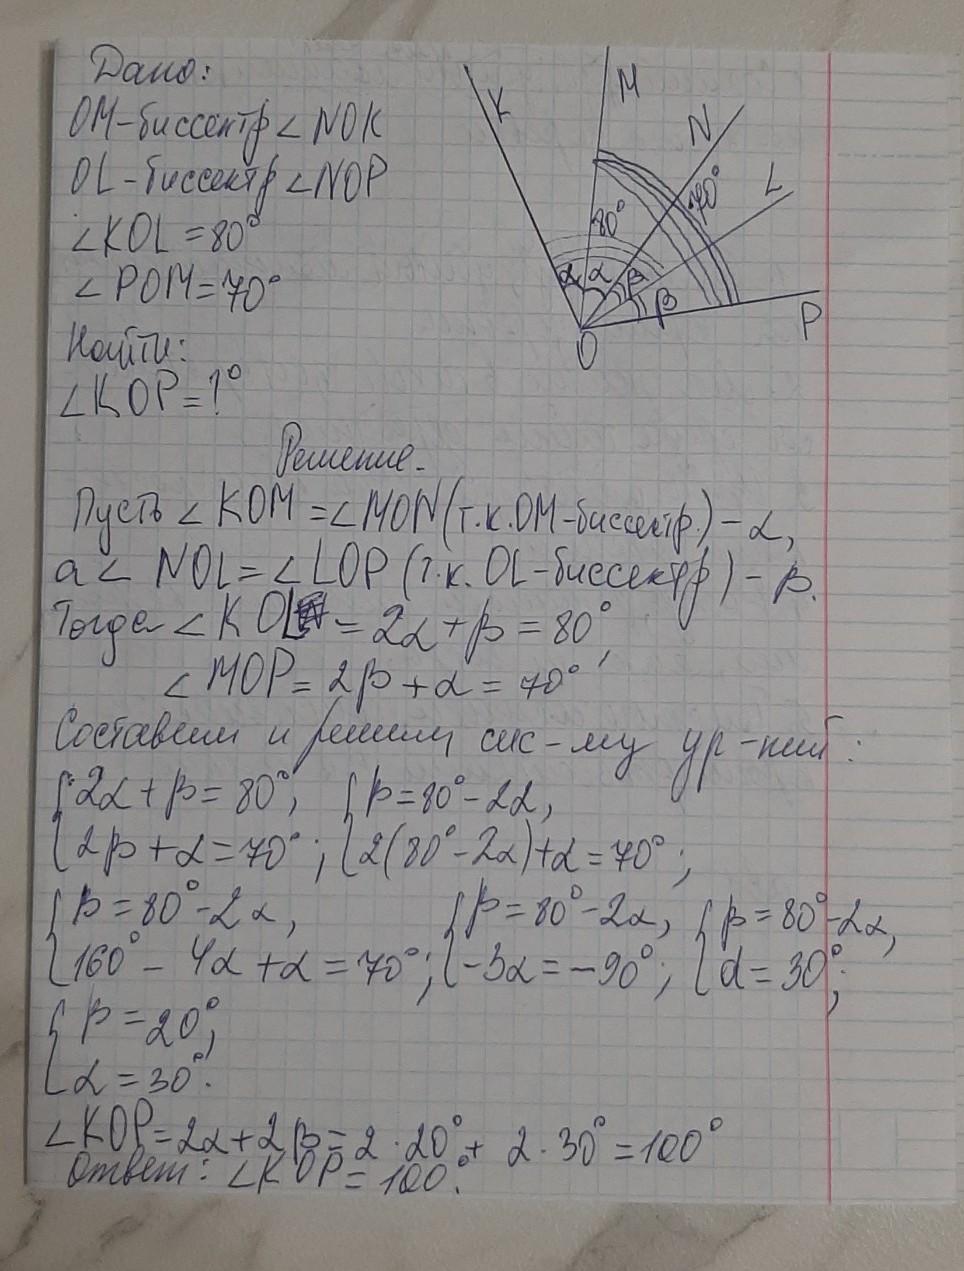 Дано:
OM-биссектр ∠NOK
OL-биссектр ∠NOP
∠KOL=80°
∠POM=70°
Найти:
∠KOP=?°
K
M
N
L
P
O
80°
70°
α α β β
Решение.
Пусть ∠KOM=∠MON(т.к.OM-биссектр.)-α,
а∠NOL=∠LOP(т.к.OL-биссектр)-β.
Тогда ∠KOL=2α+β=80°,
∠MOP=2β+α=70°
Составим и решим сис-му ур-ний:
{2α+β=80°, {β=80°-2α,
{2β+α=70°; {2(80°-2α)+α=70°;
{β=80°-2α, {β=80°-2α, {β=80°-2α,
{160°-4α+α=70°; {-3α=-90°; {α=30°;
{β=20°,
{α=30°.
∠KOP=2α+2β=2·20°+2·30°=100°
Ответ: ∠KOP=100°.